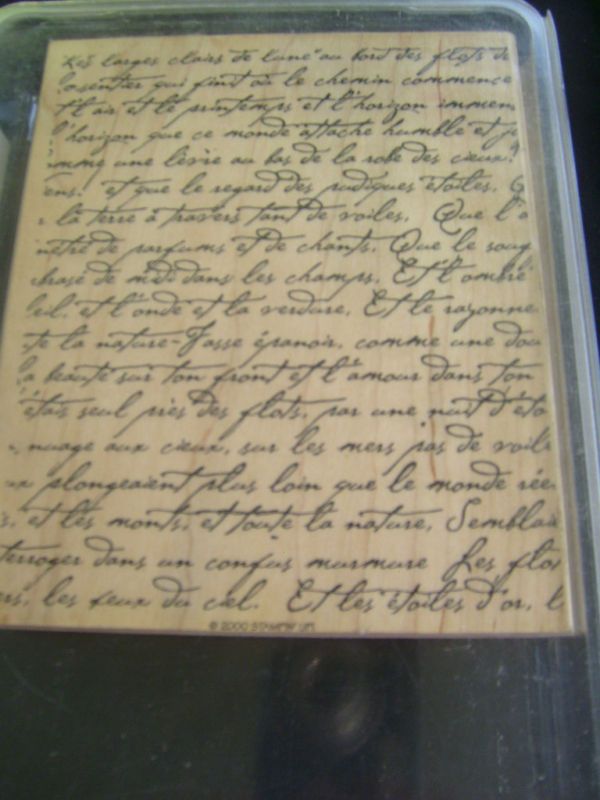 Les larges clairs de lune au bord des flots de
le sentier qui finit où le chemin commence
Et l'air et le printemps et l'horizon immens
l'horizon que ce monde attache humble et jo
omme une lèvre au bas de la robe des cieux!
ens! et que le regard des pudiques étoiles, Q
la terre à travers tant de voiles, Que l'a
nétré de parfums et de chants, Que le souf
brasé de midi dans les champs, Et l'ombre
leil, et l'onde et la verdure, Et le rayonne
te la nature-Fasse épanoir, comme une dou
la beauté sur ton front et l'amour dans ton
étais seul près des flots, par une nuit d'éto
nuage aux cieux, sur les mers pas de voile
ux plongeaient plus loin que le monde rée
s, et les monts, et toute la nature, Semblaie
terroger dans un confus murmure Les flo
ers, les feux du ciel. Et les étoiles d'or, l
© 2000 STAMPIN' UP!